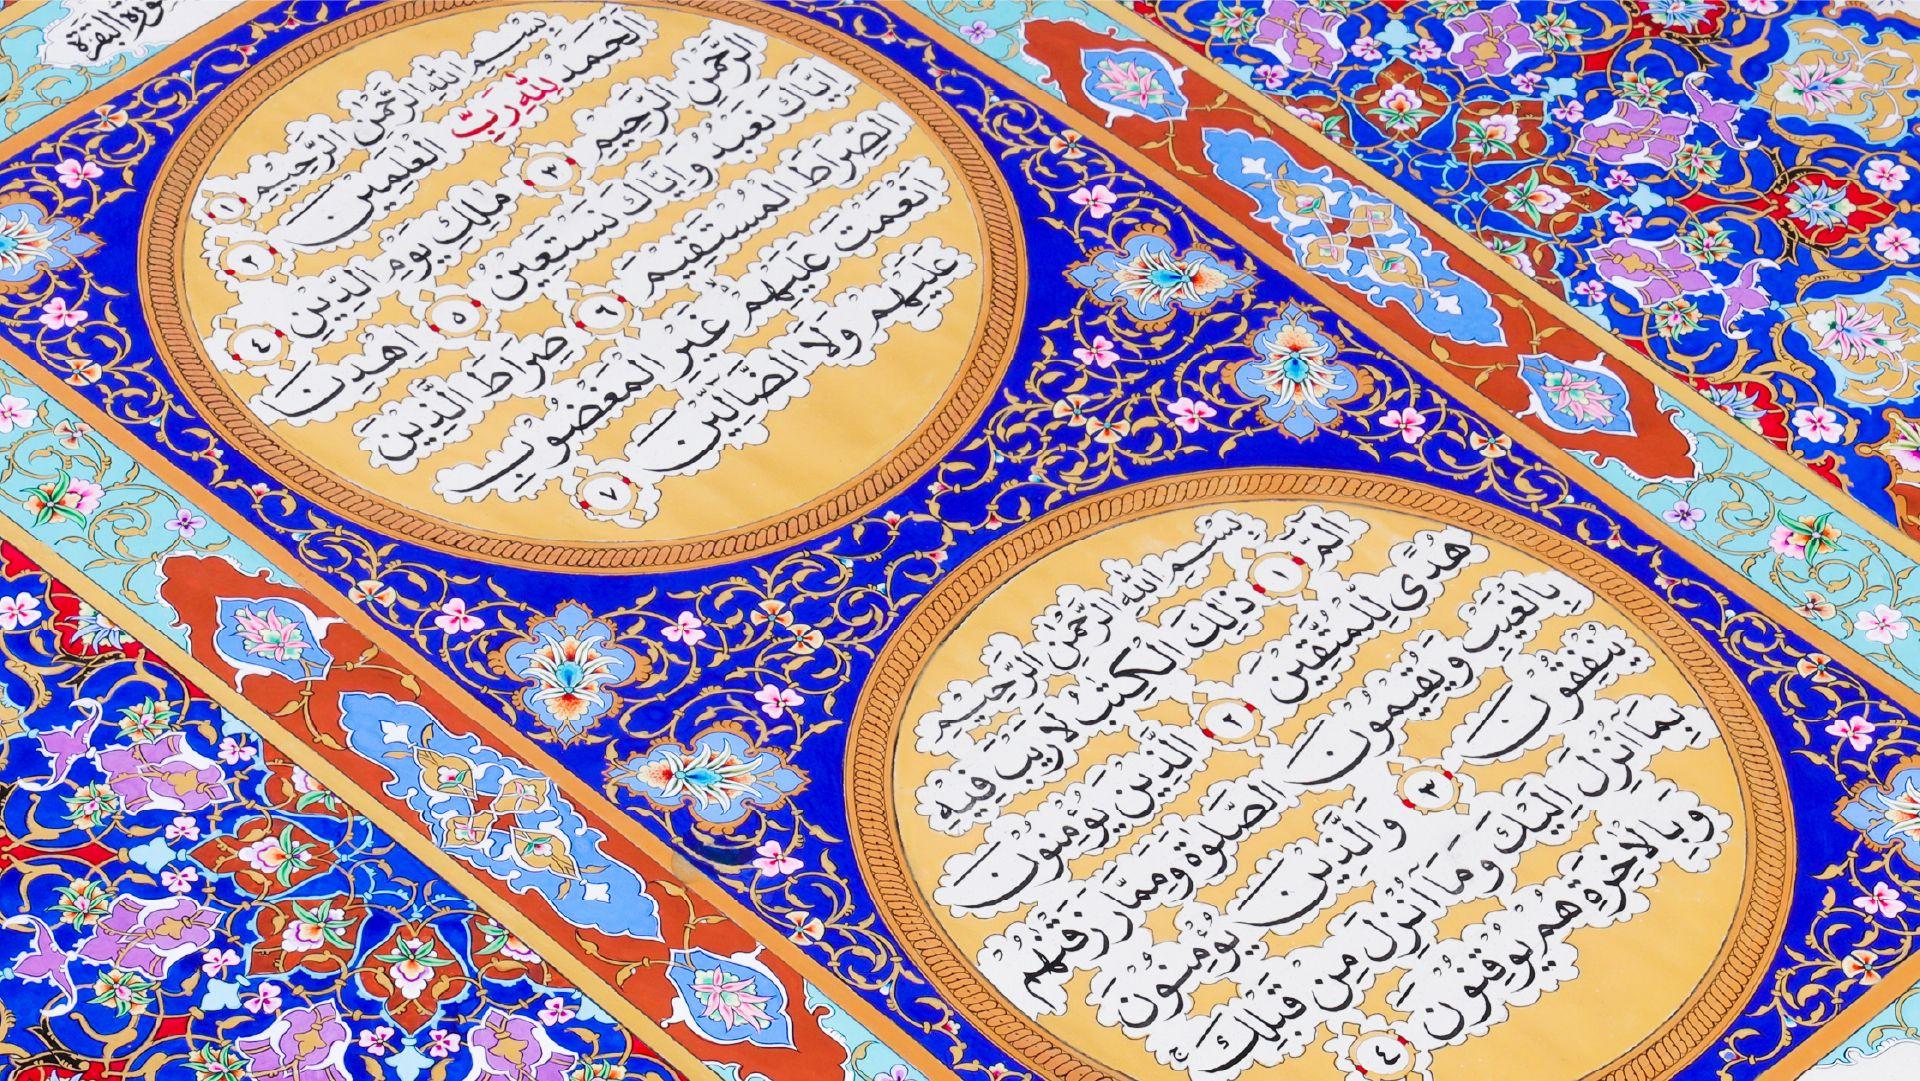 سورة البقرة
بِسْمِ اللهِ الرَّحْمٰنِ الرَّحِيْمِ ١
اَلْحَمْدُ لِلّٰهِ رَبِّ الْعٰلَمِيْنَ ٢
الرَّحْمٰنِ الرَّحِيْمِ ٣ مٰلِكِ يَوْمِ الدِّيْنِ ٤
اِيَّاكَ نَعْبُدُ وَاِيَّاكَ نَسْتَعِيْنُ ٥ اِهْدِنَا
الصِّرَاطَ الْمُسْتَقِيْمَ ٦ صِرَاطَ الَّذِيْنَ
اَنْعَمْتَ عَلَيْهِمْ غَيْرِ الْمَغْضُوْبِ
عَلَيْهِمْ وَلَا الضَّالِّيْنَ ٧
بِسْمِ اللهِ الرَّحْمٰنِ الرَّحِيْمِ
الٓمّٓ ١ ذٰلِكَ الْكِتٰبُ لَا رَيْبَ فِيْهِ
هُدًى لِّلْمُتَّقِيْنَ ٢ الَّذِيْنَ يُؤْمِنُوْنَ
بِالْغَيْبِ وَيُقِيْمُوْنَ الصَّلٰوةَ وَمِمَّا رَزَقْنٰهُمْ
يُنْفِقُوْنَ ٣ وَالَّذِيْنَ يُؤْمِنُوْنَ
بِمَا اُنْزِلَ اِلَيْكَ وَمَا اُنْزِلَ مِنْ قَبْلِكَ
وَبِالْاٰخِرَةِ هُمْ يُوْقِنُوْنَ ٤